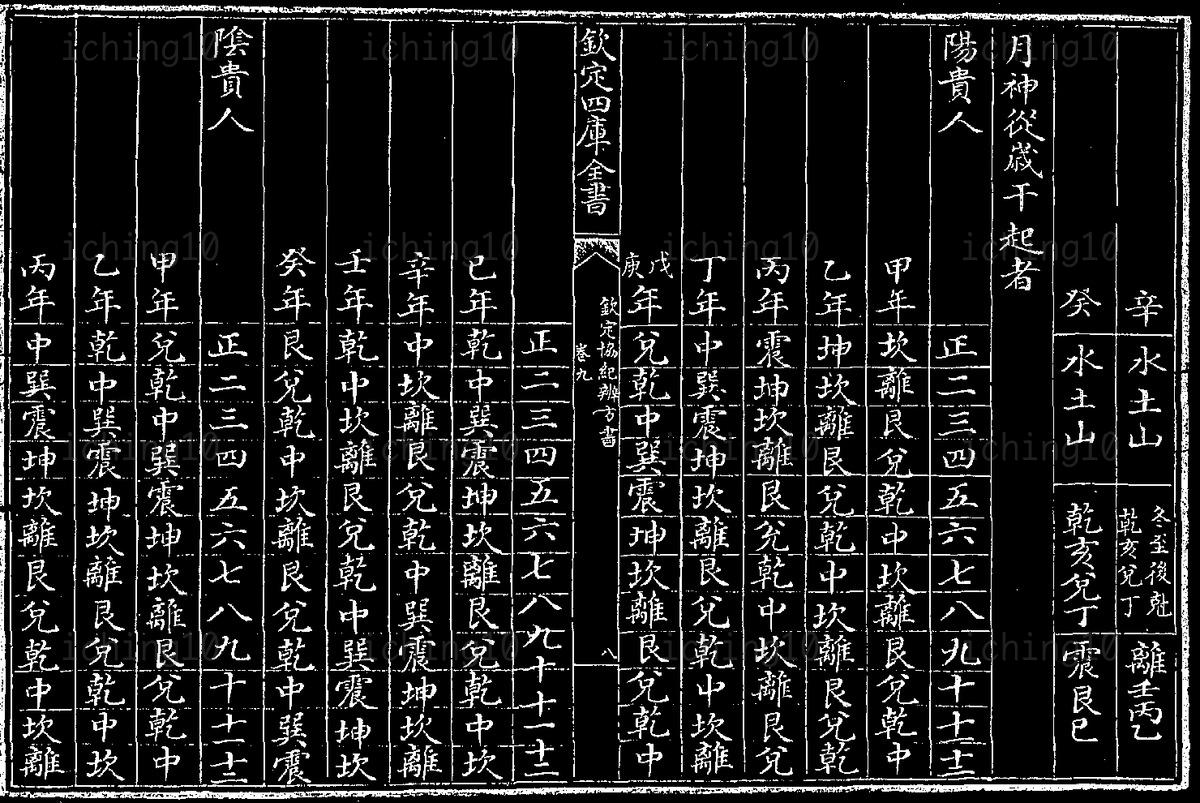 辛 水土山 冬至後尅乾亥兌丁 離壬丙乙
癸 水土山 乾亥兌丁 震艮巳
月神從歲干起者
陽貴人 正二三四五六七八九十十一十二
甲年坎離艮兌乾中坎離艮兌乾中
乙年坤坎離艮兌乾中坎離艮兌乾
丙年震坤坎離艮兌乾中坎離艮兌
丁年中巽震坤坎離艮兌乾中坎離
戊庚年兌乾中巽震坤坎離艮兌乾中
欽定四庫全書
欽定協紀辨方書
卷九
八
正二三四五六七八九十十一十二
已年乾中巽震坤坎離艮兌乾中坎
辛年中坎離艮兌乾中巽震坤坎離
壬年乾中坎離艮兌乾中巽震坤坎
癸年艮兌乾中坎離艮兌乾中巽震
陰貴人 正二三四五六七八九十十一十二
甲年兌乾中巽震坤坎離艮兌乾中
乙年乾中巽震坤坎離艮兌乾中坎
丙年中巽震坤坎離艮兌乾中坎離
iching10 iching10 iching10 iching10
iching10 iching10 iching10 iching10
iching10 iching10 iching10 iching10
iching10 iching10 iching10 iching10